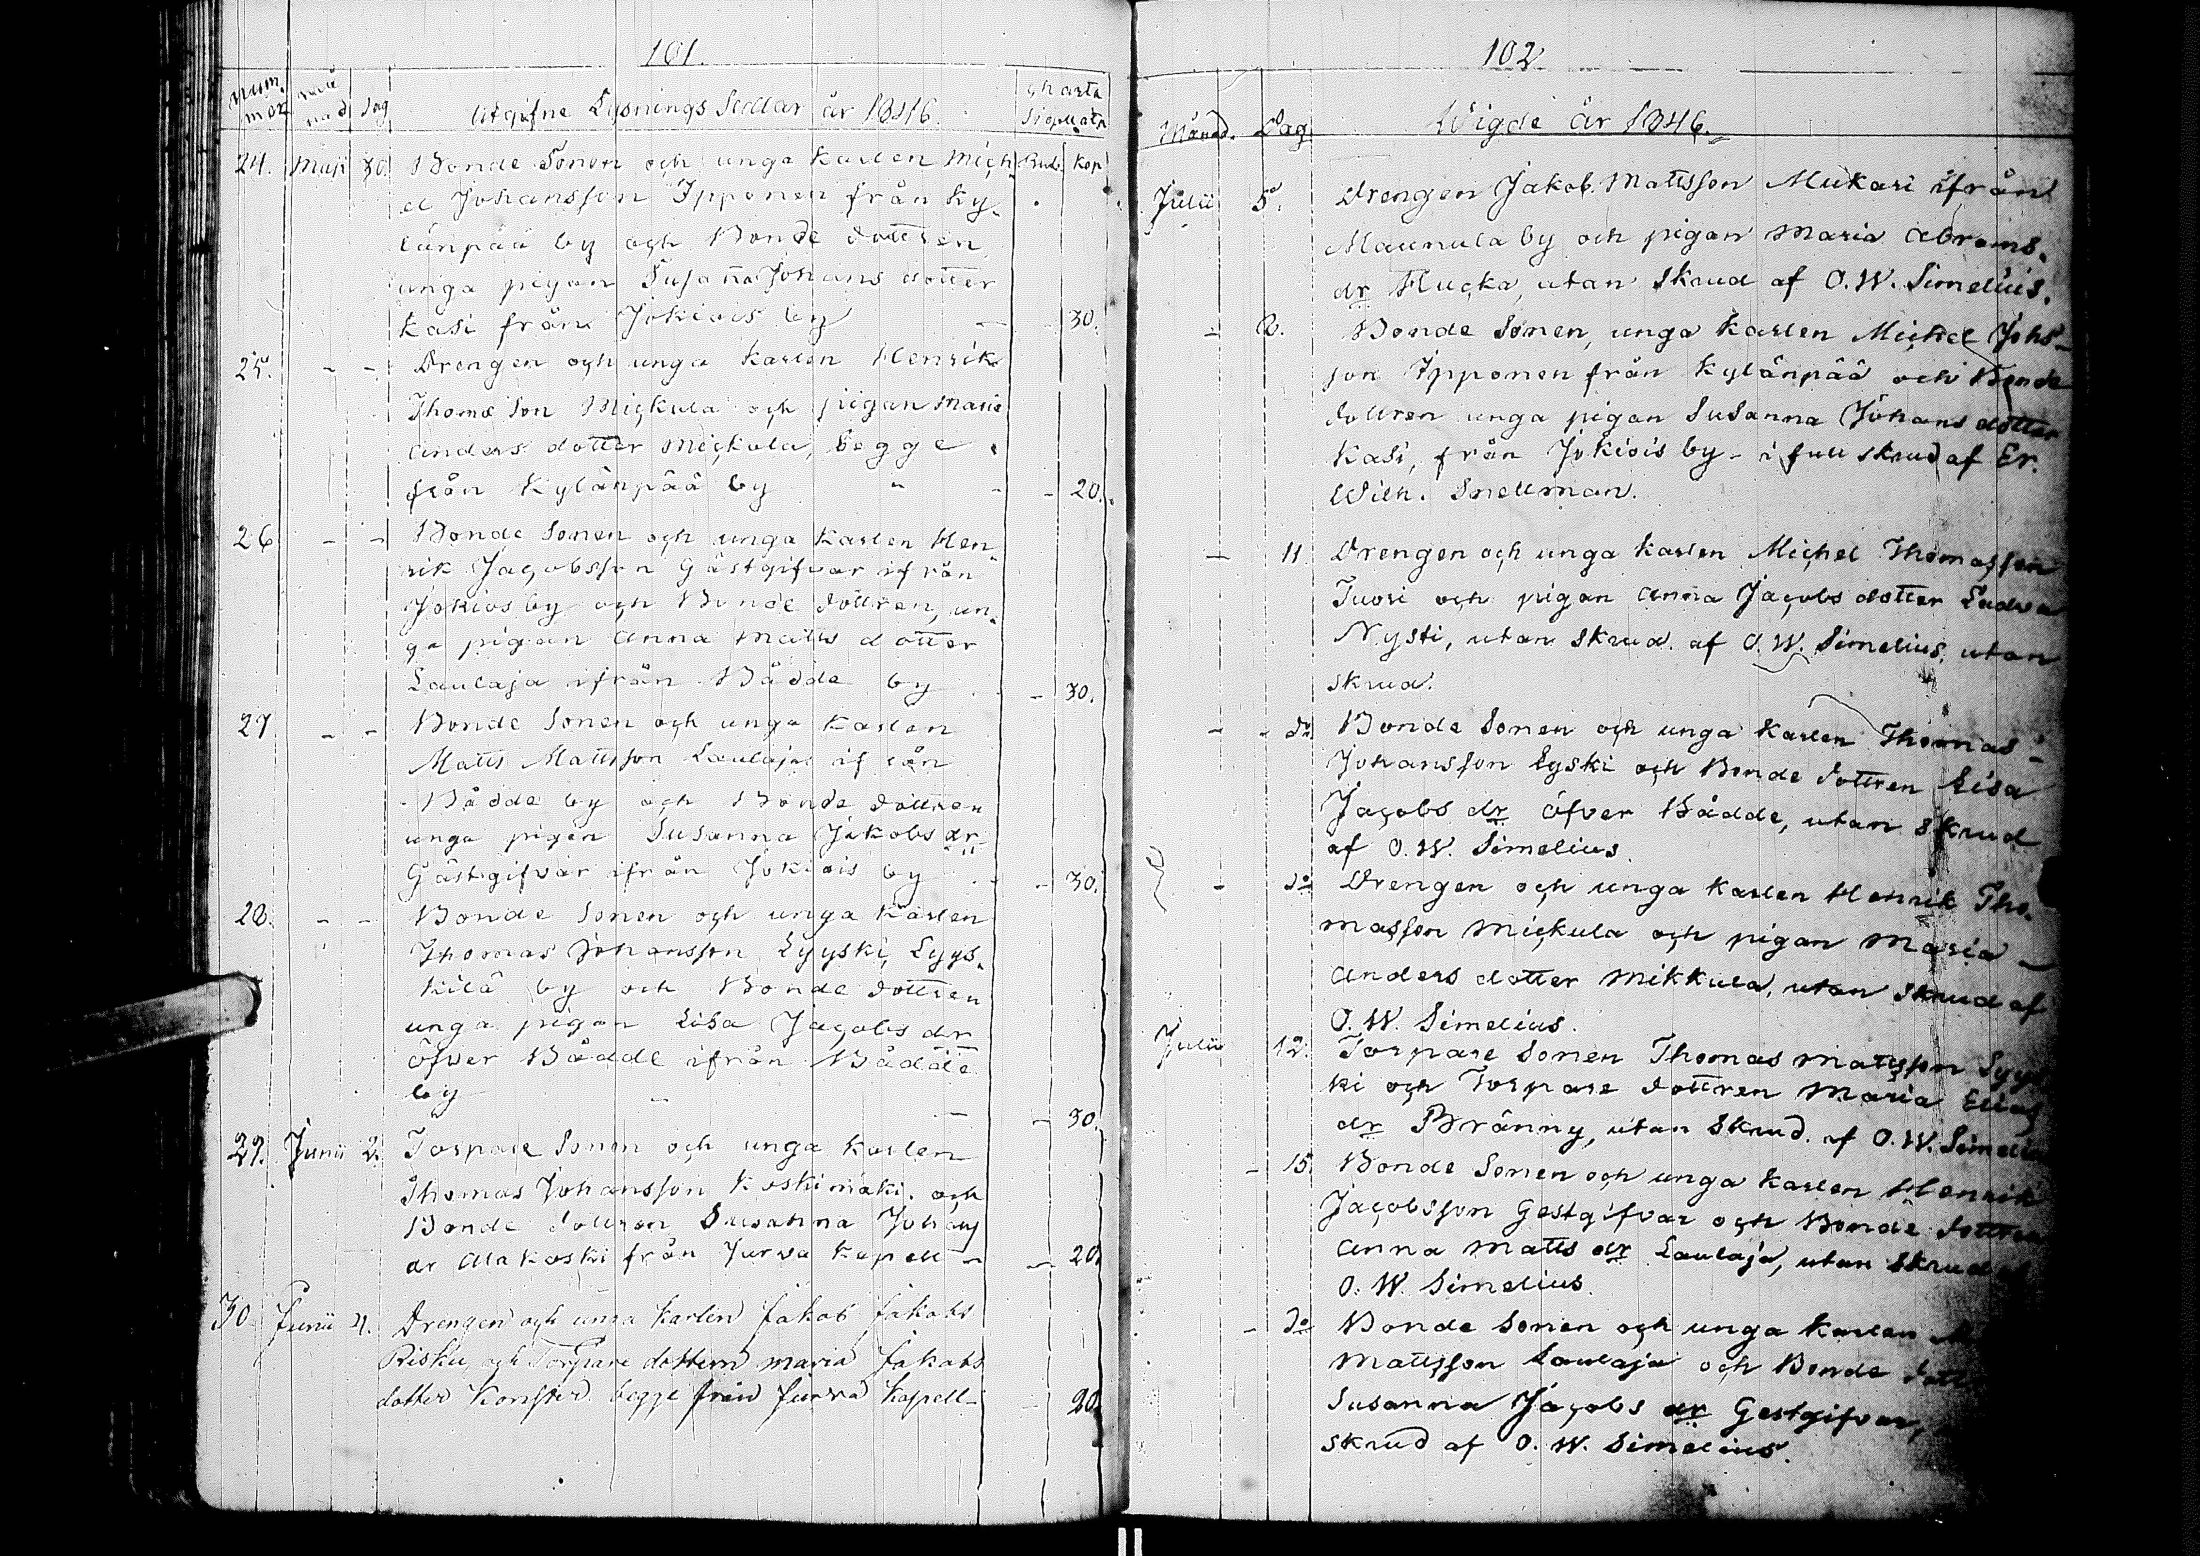 101.
Num
mer
må
nad
Dag
Utgifne Lysnings Sedlar år 1846.
Charta
Sigillata
24. Maji 30. Bonde Sonen och unga Karlen Mich- Rub. Kop
el Johansson Ipponen från Ky-
länpää by och Bonde dottren
unga pigan Susanna Johans dotter
Kasi från Jokiois by - - 30.
25. - - Drengen och unga Karlen Henrik
Thomæ Son Mickula och pigan Maria
Anders dotter Mickula, begge
från Kylänpää by " - - 20.
26 - - Bonde Sonen och unga Karlen Hen-
rik Jacobsson Gästgifvar ifrån
Jokios by och Bonde dottren, un-
ga pigan Anna Matts dotter
Laulaja ifrån Bådde by - 30.
27 - - Bonde Sonen och unga Karlen
Matts Mattsson Laulaja ifrån
Bådde by och Bonde dottren
unga pigan Susanna Jakobs dr
Gästgifvar ifrån Jokiois by - - 30.
28. - - Bonde Sonen och unga Karlen
Thomas Johansson Lyyski, Lyys-
kilä by och Bonde dottren
unga pigan Lisa Jacobs dr
Öfver Bådde ifrån Bådde
by - - - 30.
29. Junii 2. Torpare Sonen och unga Karlen
Thomas Johansson Koskimäki och
Bonde dottren Susanna Johans
dr Alakoski från Jurva Kapell - - 20.
30 Junii 4. Drengen och unga Karlen Jakob Jakobs
Risku och Torpare dottern Maria Jakobs
dotter begge från Jurva Kapell - - 20.
102
Månad. Dag Wigde år 1846.
Julii 5. Drengen Jakob Mattsson Mukari ifrån
Maunula by och pigan Maria Abrams-
dr Hucka, utan Skrud af O. W. Simelius.
- 2. Bonde Sonen, unga Karlen Michel Johs-
son Ipponen från Kylänpää och Bonde
dottren unga pigan Susanna Johans dotter
Kasi, från Jokiois by - i full skrud af Er.
Wilh. Snellman.
- 11 Drengen och unga Karlen Michel Thomasson
Tuori och pigan Anna Jacobs dotter
Nysti, utan Skrud. af O. W. Simelius, utan
skrud.
- - do Bonde Sonen och unga Karlen Thomas
Johansson Lyski och Bonde dottren Lisa
Jacobs dr öfver Bådde, utan skrud
af O. W. Simelius.
- do Drengen och unga Karlen Henrik Tho-
masson Mickula och pigan Maria -
Anders dotter Mikkula, utan skrud af
O. W. Simelius.
Julii 12. Torpare Sonen Thomas Mattsson
ki och Torpare dottren Maria Elias
dr Bränny, utan Skrud. af O. W. Simelius
- 15. Bonde Sonen och unga Karlen Henrik
Jacobsson Gestgifvar och Bonde dottren
Anna Matts dr Laulaja, utan skrud af
O. W. Simelius.
- do Bonde Sonen och unga Karlen
Mattsson Laulaja och Bonde
Susanna Jacobs dr Gestgifvar,
skrud af O. W. Simelius.